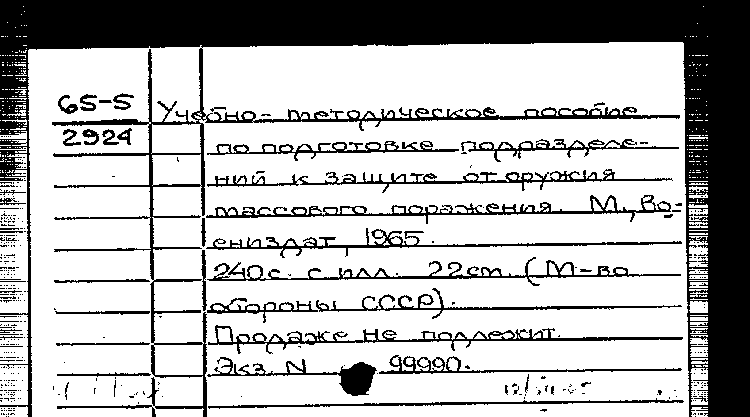 65-5 Учебно-методическое пособие
2924
по подготовке подразделе-
ний к защите от оружия
массового поражения. М., Во-
ениздат, 1965.
240с. с илл. 22см. (М-во
обороны СССР).
Продаже не подлежит.
Экз. N 99990.